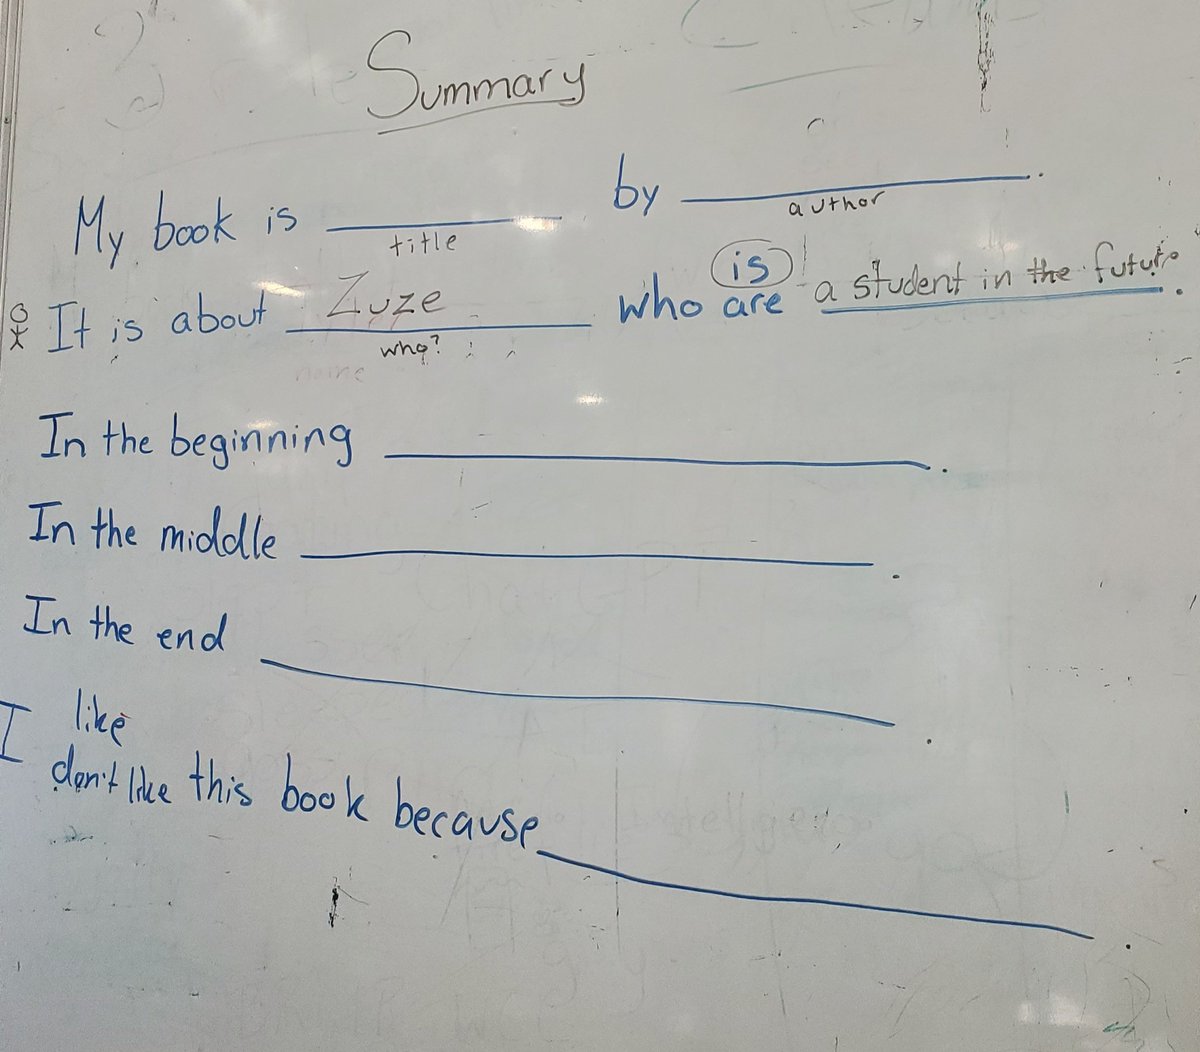 Summary
My book is ____ by ____.
title author
is
It is about Zuze who are a student in the future.
who?
name
In the beginning ____.
In the middle ____.
In the end ____.
like
I don't like this book because ____.